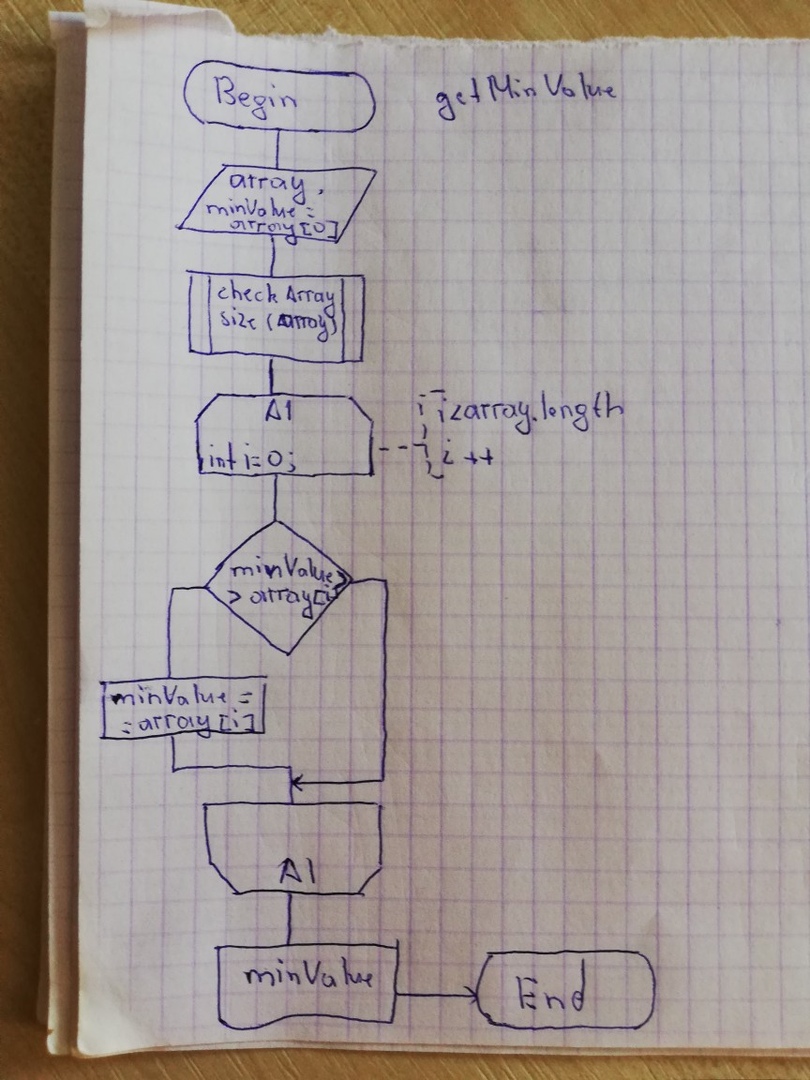 Begin
getMinValue
array,
minValue =
array[0]
check Array
size (array)
A1
int i=0;
i<array.length
i++
minValue >
> array[i]
minValue =
= array[i]
A1
minValue
End